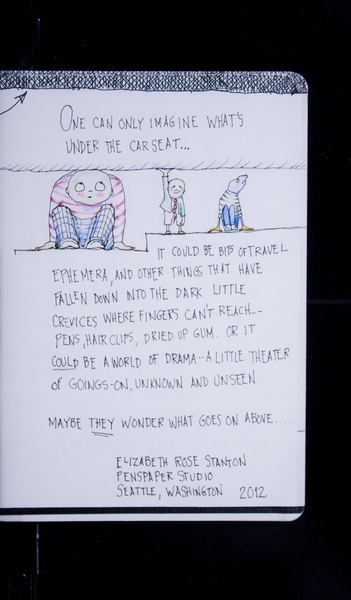 ONE CAN ONLY IMAGINE WHAT'S
UNDER THE CAR SEAT...
IT COULD BE BITS OF TRAVEL
EPHEMERA, AND OTHER THINGS THAT HAVE
FALLEN DOWN INTO THE DARK LITTLE
CREVICES WHERE FINGERS CAN'T REACH--
PENS, HAIR CLIPS, DRIED UP GUM. OR IT
COULD BE A WORLD OF DRAMA--A LITTLE THEATER
OF GOINGS-ON, UNKNOWN AND UNSEEN.
MAYBE THEY WONDER WHAT GOES ON ABOVE.....
ELIZABETH ROSE STANTON
PENSPAPER STUDIO
SEATTLE, WASHINGTON 2012